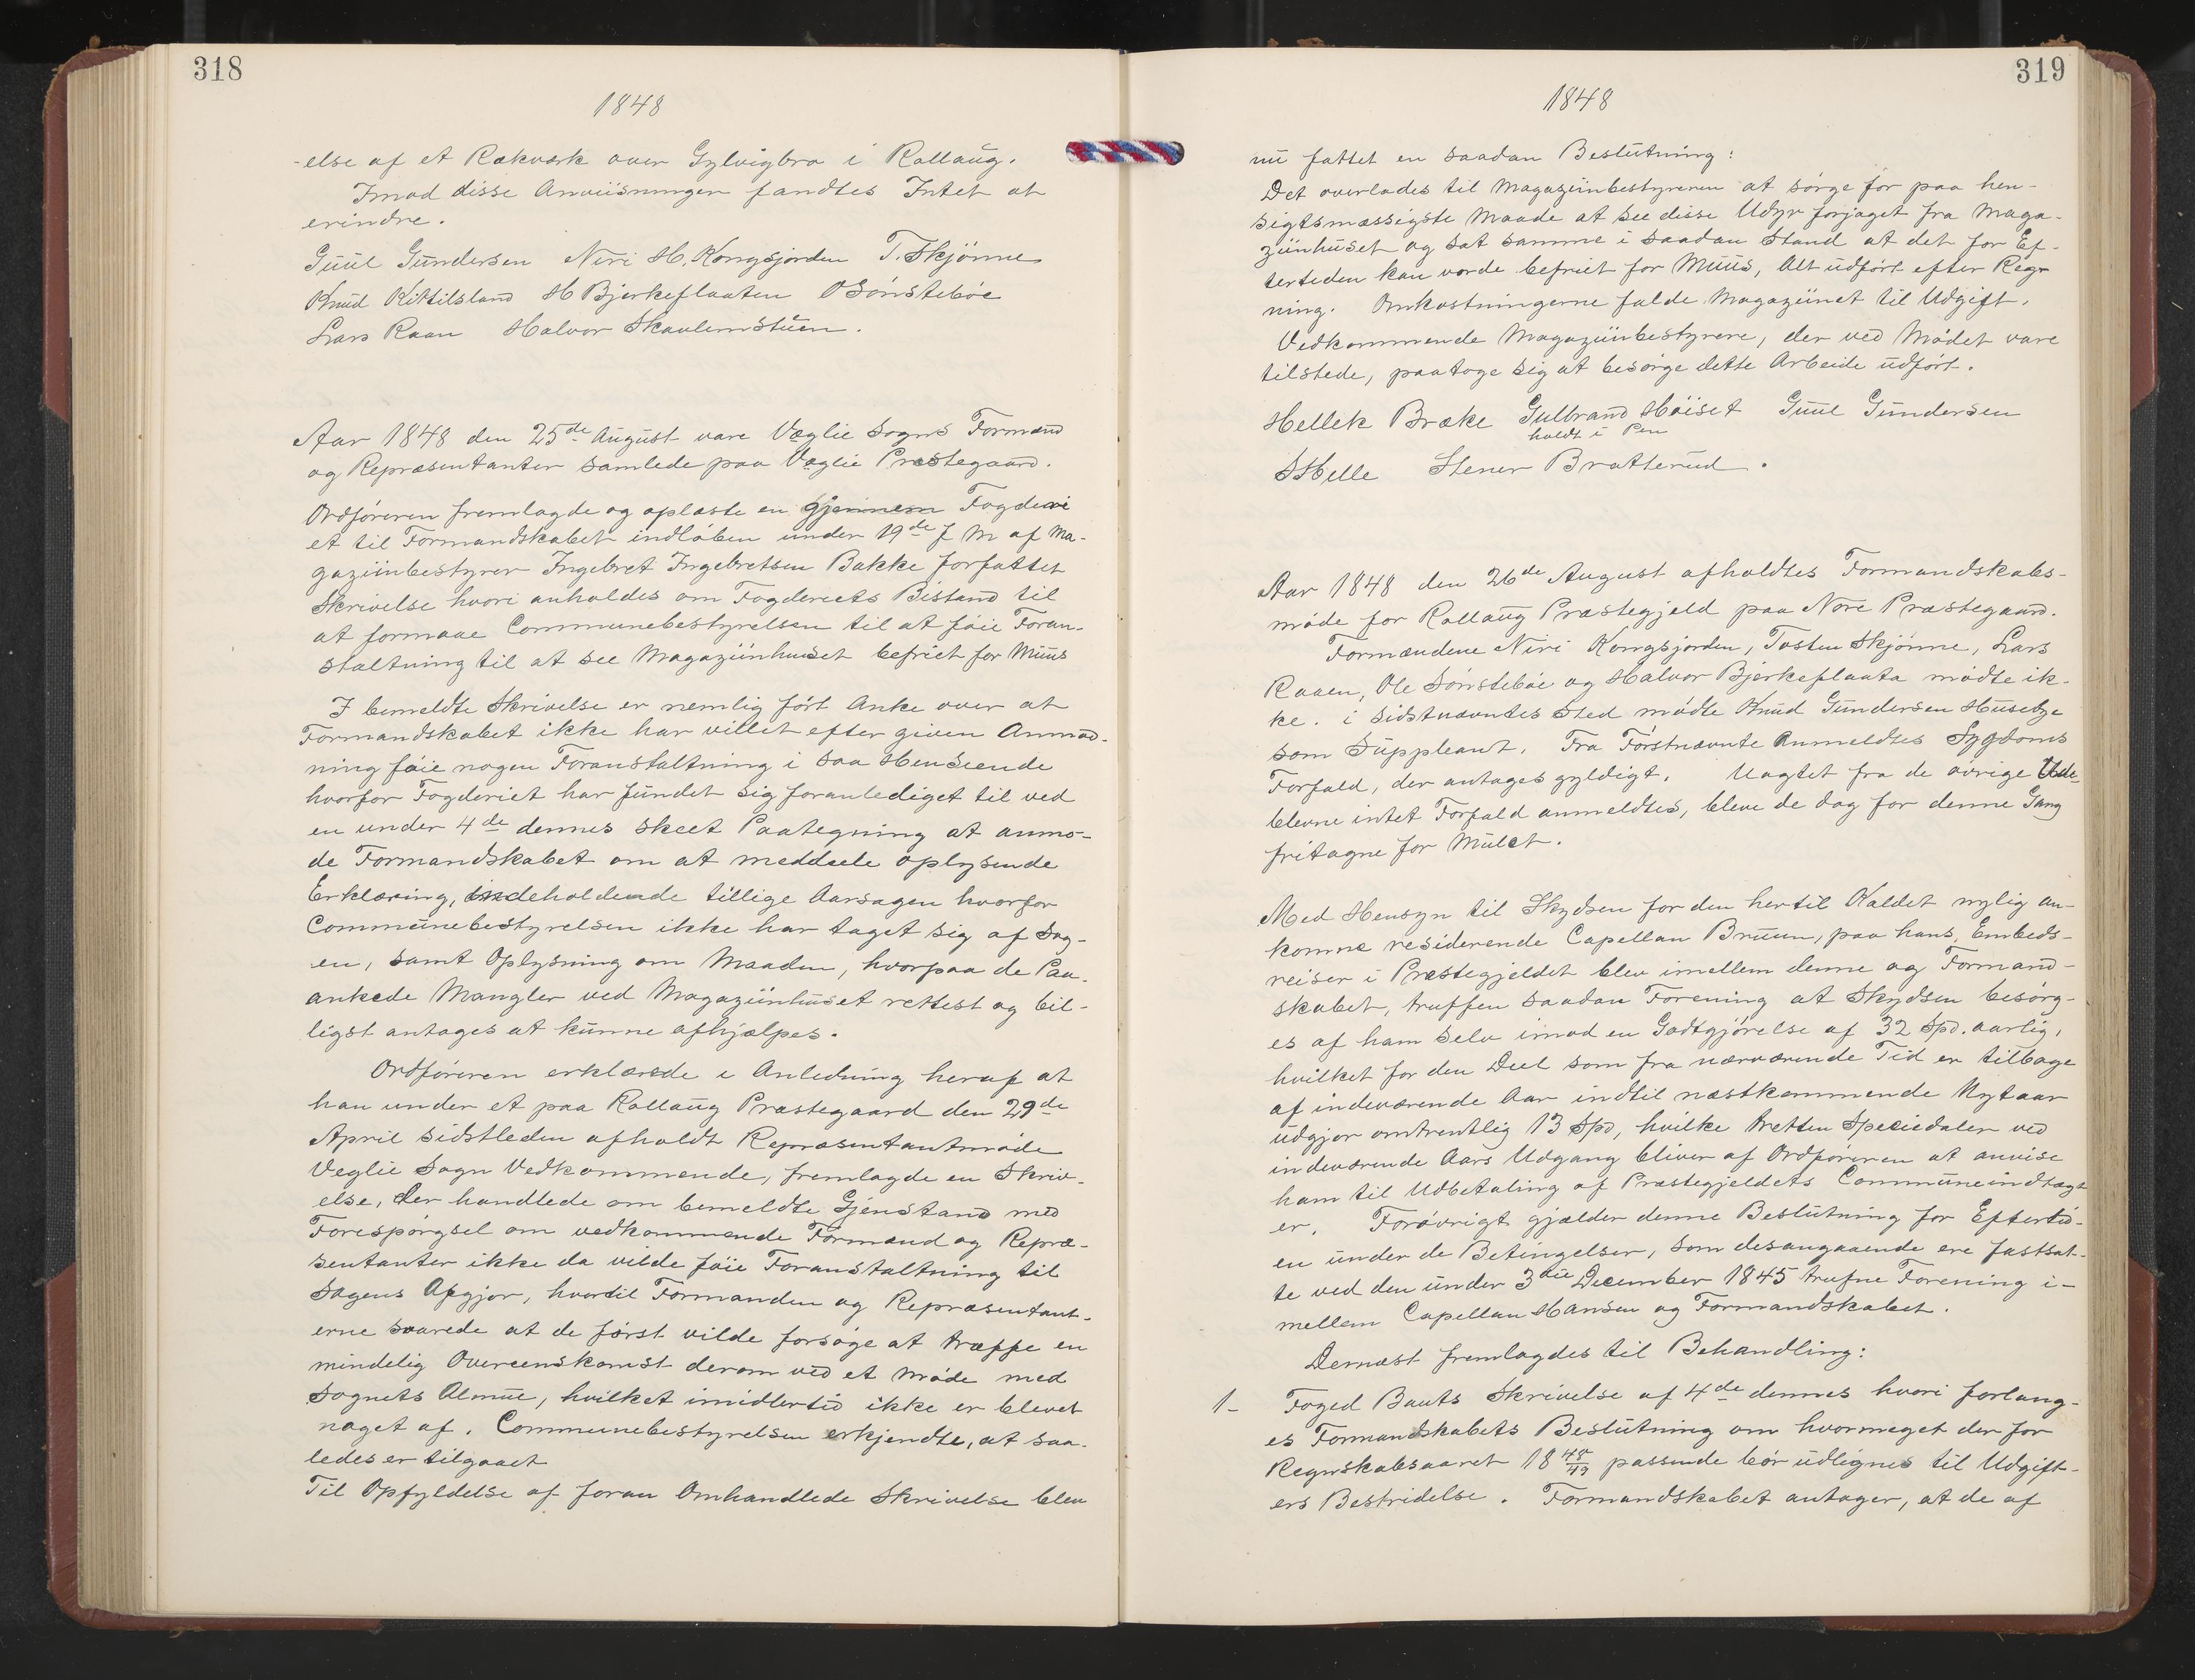 318
1848
-else af et Rækværk over Gylvigbro i Rollaug.
Imod disse Anviisninger fandtes Intet at
erindre.
Guul Gundersen Niri H. Kongsjorden T. Skjönne
Knud Kittilsland H Bjerkeflaaten O Sönsteböe
Lars Raan Halvor Skavlemstuen.
Aar 1848 den 25de August vare Væglie Sogns Formænd
og Repræsentanter samlede paa Væglie Præstegaard.
Ordföreren fremlagde og oplæste en gjennem Fogderi
et til Formandskabet indlöben under 19de f M af Ma-
gaziinbestyrer Ingebret Ingebretsen Bakke forfattet
Skrivelse hvori anholdes om Fogderiets Bistand til
at formaae Communebestyrelsen til at föie Foran-
staltning til at see Magaziinhuset befriet for Muus
I bemeldte Skrivelse er nemlig fört Anke over at
Formandskabet ikke har villet efter given Anmod-
ning föie nogen Foranstaltning i saa Henseende
hvorfor Fogderiet har fundet sig foranlediget til ved
en under 4de dennes skeet Paategning at anmo-
de Formandskabet om at meddeele oplysende
Erklæring, indeholdende tillige Aarsagen hvorfor
Communebestyrelsen ikke har taget sig af Sag-
en, samt Oplysning om Maaden, hvorpaa de Paa-
ankede Mangler ved Magaziinhuset rettest og bil-
ligst antages at kunne afhjælpes.
Ordföreren erklærede i Anledning heraf at
han under et paa Rollaug Præstegaard den 29de
April sidstleden afholdt Repræsentantmöde
Veglie Sogn Vedkommende, fremlagde en Skriv-
else, der handlede om bemeldte Gjenstand med
Forespörgsel om vedkommende Formænd og Repræ-
sentanter ikke da vilde föie Foranstaltning til
Sagens Afgjör, hvortil Formænden og Repræsentant-
erne svarede at de först vilde forsöge at træffe en
mindelig Overeenskomst derom ved et Möde med
Sognets Almue, hvilket imidlertid ikke er blevet
noget af. Communebestyrelsen erkjendte, at saa-
ledes er tilgaaet
Til Opfyldelse af foran Omhandlede Skrivelse blev
319
1848
nu fattet en saadan Beslutning:
Det overlades til Magaziinbestyreren at sörge for paa hen-
sigtsmæssigste Maade at see disse Udyr forjaget fra Maga-
ziinhuset og sat samme i saadan Stand at det for Ef-
tertiden kan vorde befriet for Muus, Alt udfört efter Reg-
ning. Omkostningerne falde Magaziinet til Udgift.
Vedkommende Magaziinbestyrere, der ved Mödet vare
tilstede, paatoge sig at besörge dette Arbeide udfört.
Hellek Bræke Gulbrand Höiset Guul Gundersen
holdt i Pen
SHelle Stener Bratterud.
Aar 1848 den 26de August afholdtes Formandskabs-
möde for Rollaug Præstegjeld paa Nore Præstegaard.
Formændene Niri Kongsjorden, Tosten Skjönne, Lars
Raaen, Ole Sönsteböe og Halvor Bjerkeflaata mödte ik-
ke. i Sidstnævntes Sted mödte Knud Gundersen Husebye
som Suppleant. Fra Förstnævnte anmeldtes Sygdoms
Forfald, der antages gyldigt. Uagtet fra de övrige Ude-
blevne intet Forfald anmeldtes, bleve de dog for denne Gang
fritagne for Mulct.
Med Hensyn til Skydsen for den hertil Kaldet nylig an-
komne residerende Capellan Bruun, paa hans Embeds-
reiser i Præstegjeldet blev imellem denne og Formand-
skabet, truffen saadan Forening at Skydsen besörg-
es af ham selv imod en Godtgjörelse af 32 Spd. aarlig,
hvilket for den Deel som fra nærværende Tid er tilbage
af indeværende Aar indtil næstkommende Nytaar
udgjör omtrentlig 13 Spd, hvilke tretten Speciedaler ved
indeværende Aars Udgang bliver af Ordföreren at anvise
ham til Udbetaling af Præstegjeldets Communeindtægt
er. Forövrigt gjælder denne Beslutning for Eftertid-
en under de Betingelser, som desangaaende ere fastsat-
te ved den under 3die December 1845 trufne Forening i-
mellem Capellan Hansen og Formandskabet.
Dernæst fremlagdes til Behandling:
1- Foged Bauts Skrivelse af 4de dennes hvori forlang-
es Formandskabets Beslutning om hvormeget der for
Regnskabsaaret 18 48/49 passende bör udlignes til Udgift-
ers Bestridelse. Formandskabet antager, at de af